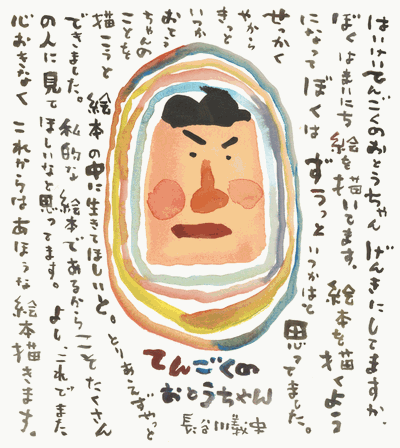 はいけいてんごくのおとうちゃん げんきにしてますか。
ぼくはまいにち絵を描いてます。絵本を描くよう
になって ぼくは ずうっと いつかはと 思ってました。
せっかく
やから
きっと
いつか
おとう
ちゃんの
ことを
描こうと 絵本の中に生きてほしいと。
とりあえずやっと
できました。私的な絵本であるからこそたくさん
の人に見てほしいなと思ってます。よし、これでまた
心おきなく これからはあほうな絵本描きます。
てんごくの
おとうちゃん
長谷川義史